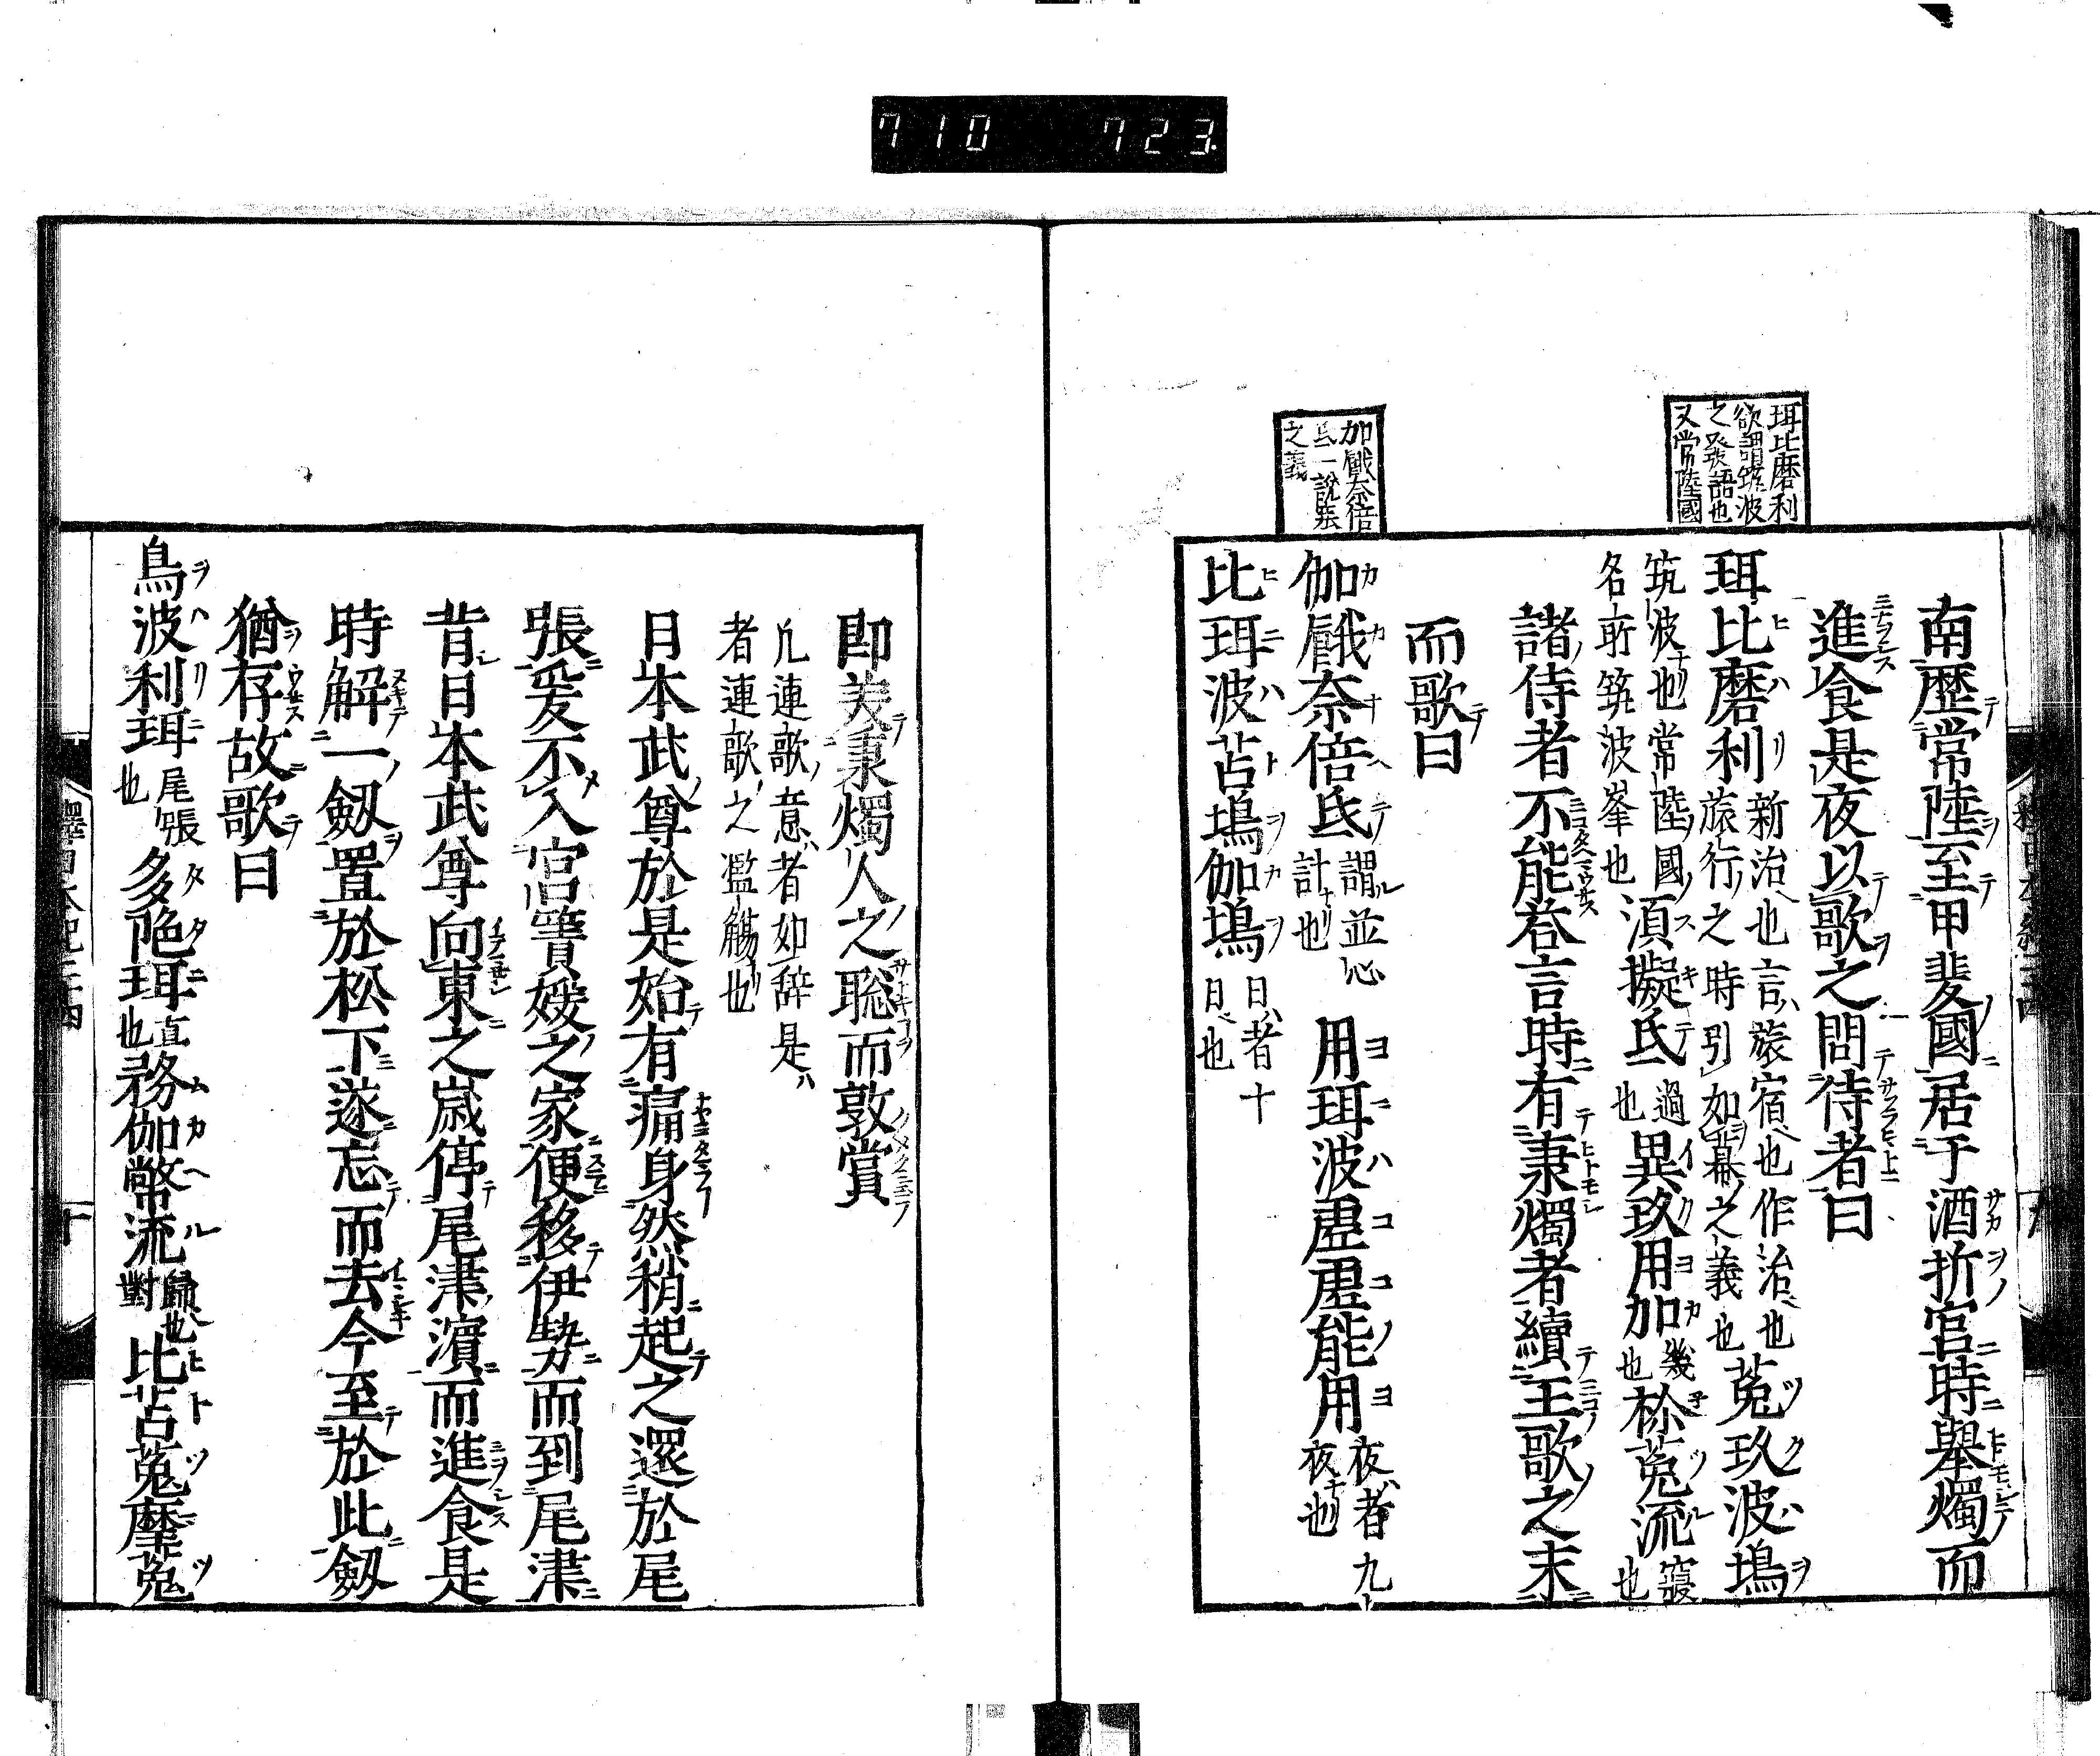 710 723
珥比磨利
欲謂筑波
之發語也
又常陸國
加餓奈倍
氐一說集
之義
南歷常陸至甲斐國居于酒折宮時舉燭而
進食是夜以歌之問侍者曰
珥比磨利新治也言旅宿也作治也旅行之時引如幕之義也菟玖波塢
筑波也常陸國名所筑波峯也須擬氐過也異玖用加幾也柹菟流寢也
諸侍者不能荅言時有秉燭者續王歌之末
而歌曰
伽餓奈倍氐謂並心計也用珥波虛虛能用夜者九夜也
比珥波苫塢伽塢日者十日也
即美秉燭人之聡而敦賞
凢連歌意者如辞是
者連歌之濫觴也
日本武尊於是始有痛身然稍起之還於尾
張爰不入宮簀媛之家便移伊勢而到尾津
昔日本武尊向東之歳停尾津濵而進食是
時解一劔置於松下遂忘而去今至於此劔
猶存故歌曰
烏波利珥尾張也多陁珥直也務伽幣流歸也對比苫菟麼菟